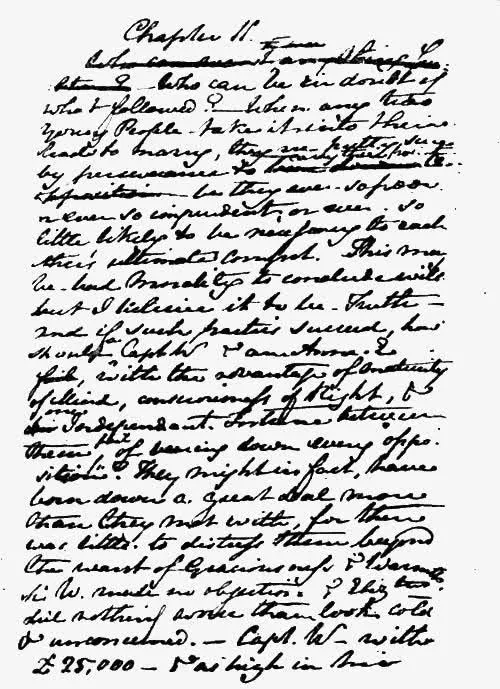 Chapter 11.
Who can be in doubt of
what followed? — When any two
Young People take it into their
heads to marry, they are pretty sure
by perseverance to carry their point
be they ever so poor
or ever so imprudent, or ever so
little likely to be necessary to each
other's ultimate comfort. This may
be bad Morality to conclude with
but I believe it to be Truth —
and if such parties succeed, how
should a Capt W & an Anne E
fail, with the advantage of maturity
of Mind, consciousness of Right, &
one Independant Fortune between
them fail of bearing down every oppo-
sition? They might in fact, have
born down a great deal more
than they met with, for there
was little to distress them beyond
the want of Graciousness & Warmth
Sir W. made no objection, & Elizth
did nothing worse than look cold
& unconcerned. — Capt. W — with
£25,000 — & as high in his